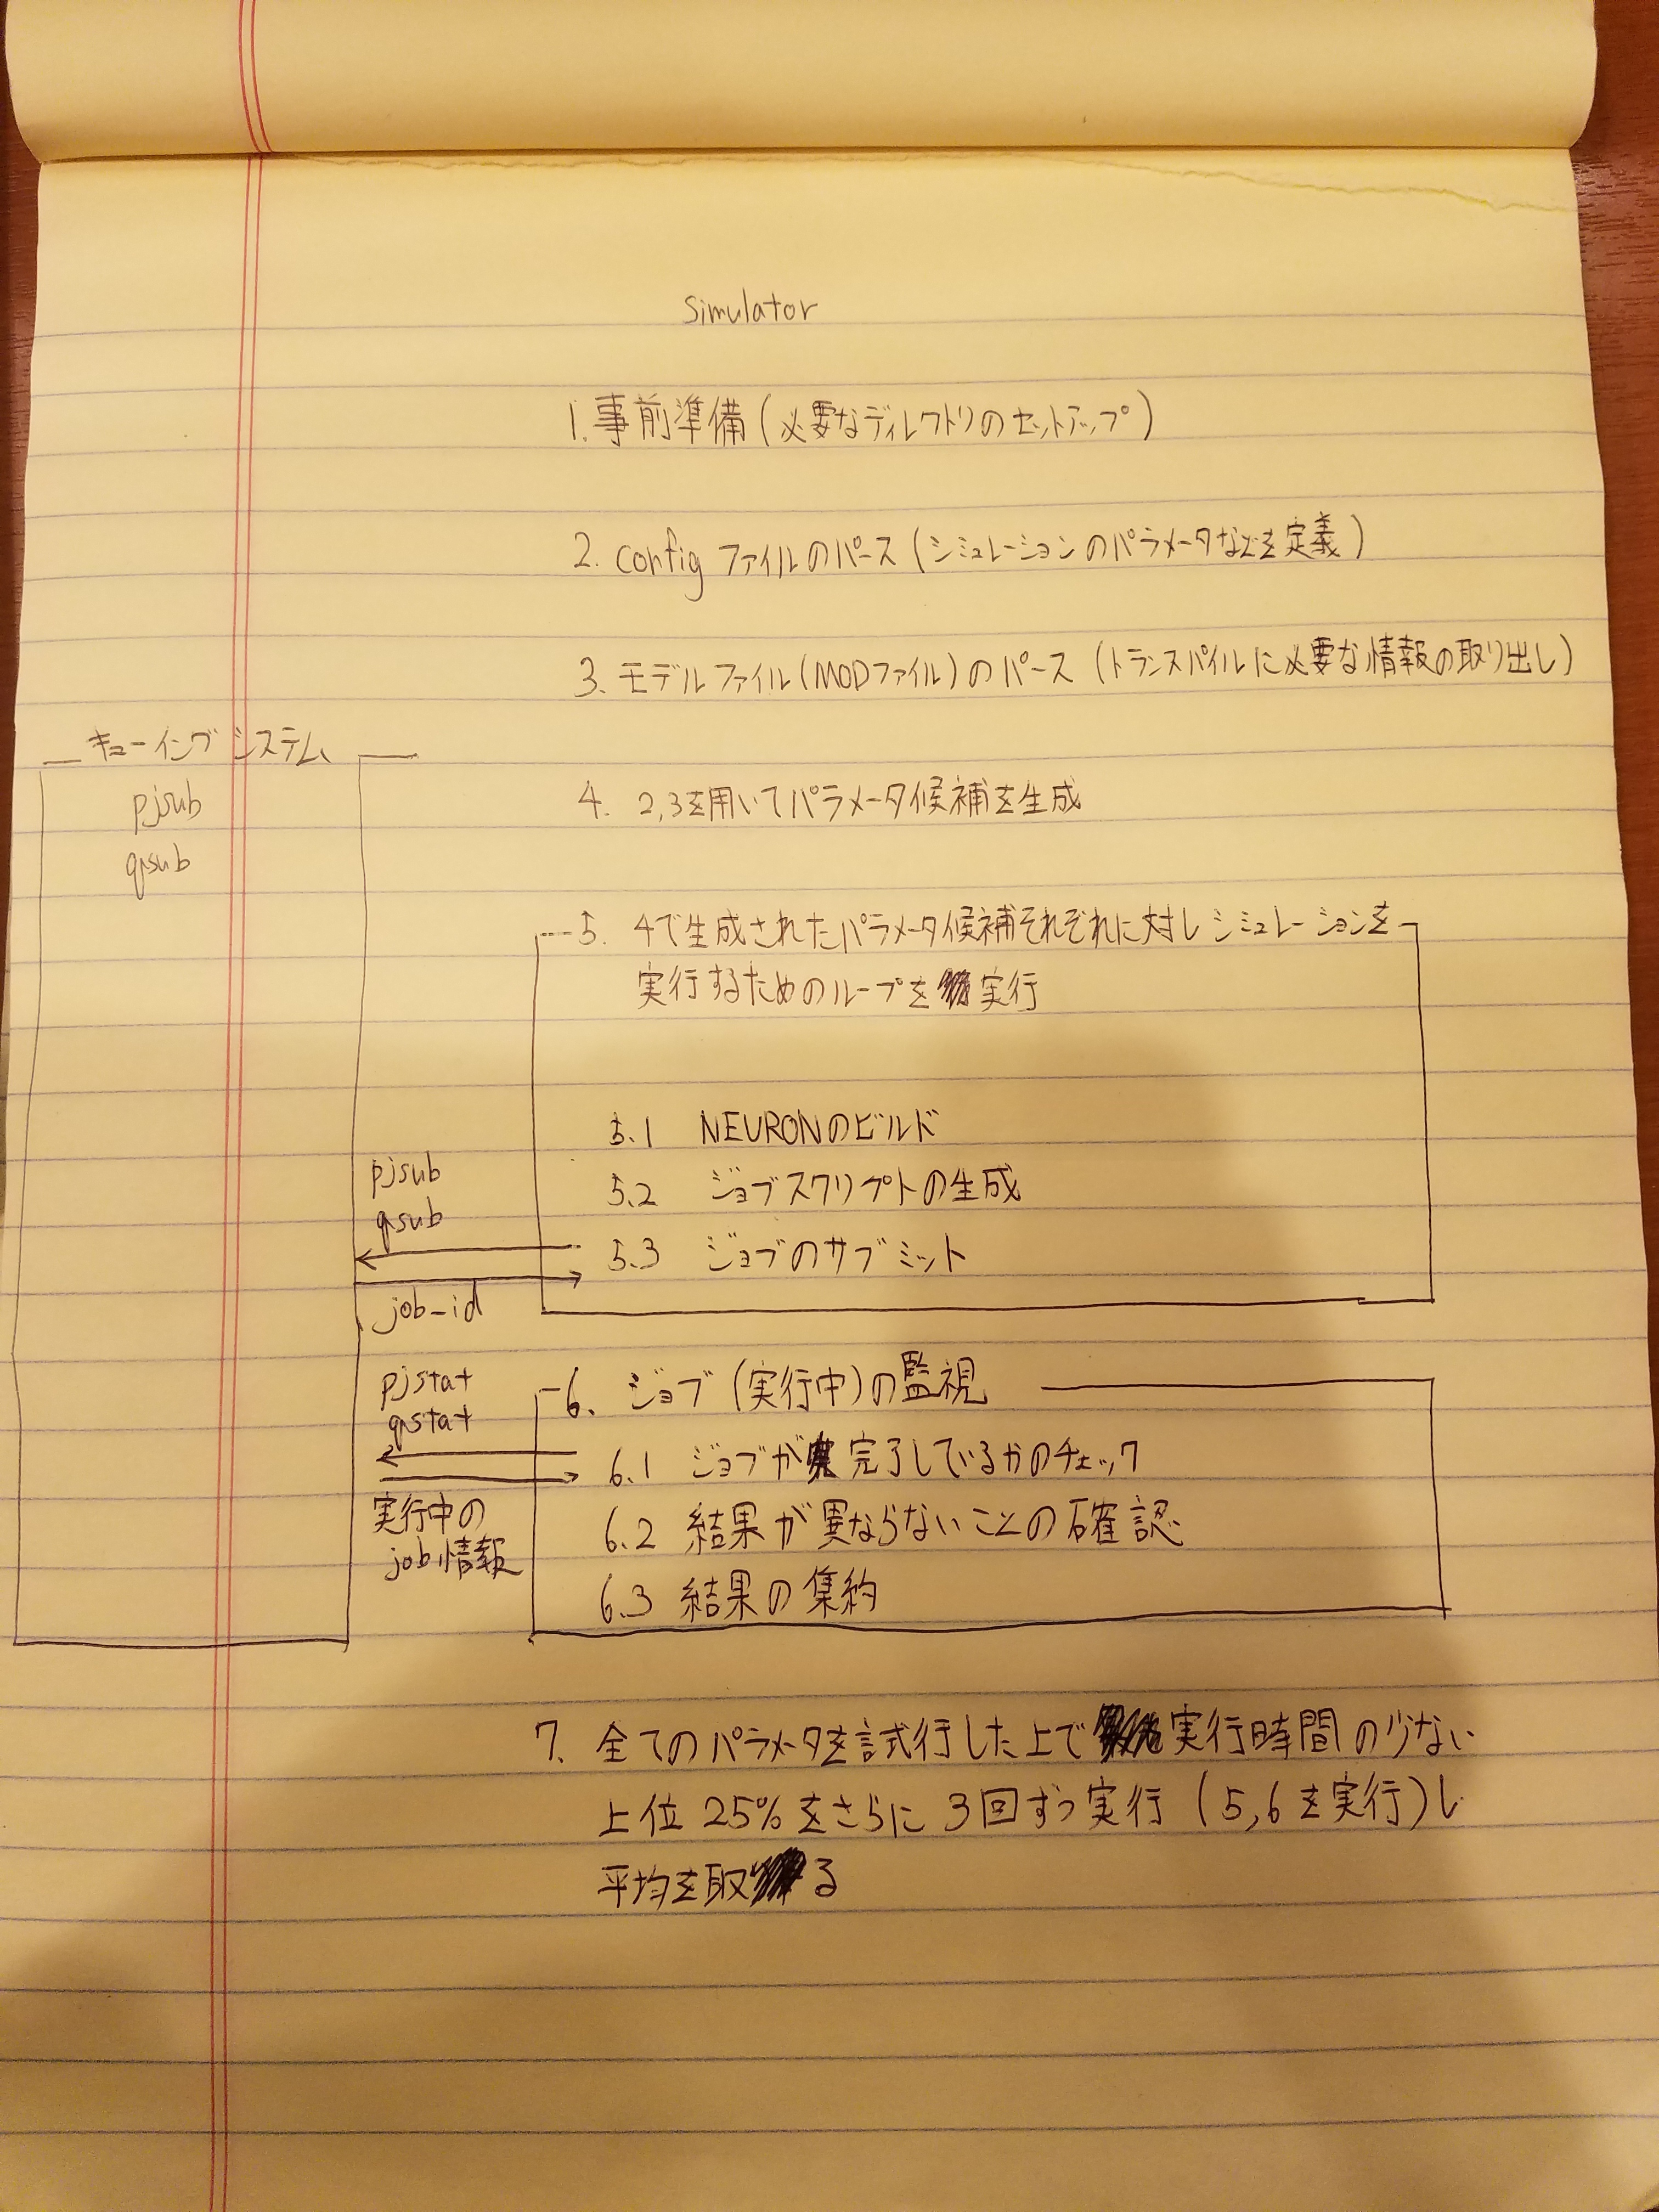 simulator
1. 事前準備(必要なディレクトリのセットアップ)
2. config ファイルのパース(シミュレーションのパラメータなどを定義)
3. モデルファイル(MODファイル)のパース(トランスパイルに必要な情報の取り出し)
キューイングシステム
pjsub
qsub
4. 2,3を用いてパラメータ候補を生成
5. 4で生成されたパラメータ候補それぞれに対しシミュレーションを
実行するためのループを実行
5.1 NEURONのビルド
5.2 ジョブスクリプトの生成
5.3 ジョブのサブミット
pjsub
qsub
job-id
6. ジョブ(実行中)の監視
6.1 ジョブが完了しているかのチェック
6.2 結果が異ならないことの確認
6.3 結果の集約
pjstat
qstat
実行中の
job情報
7. 全てのパラメータを試行した上で実行時間の少ない
上位25%をさらに3回ずつ実行(5,6を実行)し
平均を取る